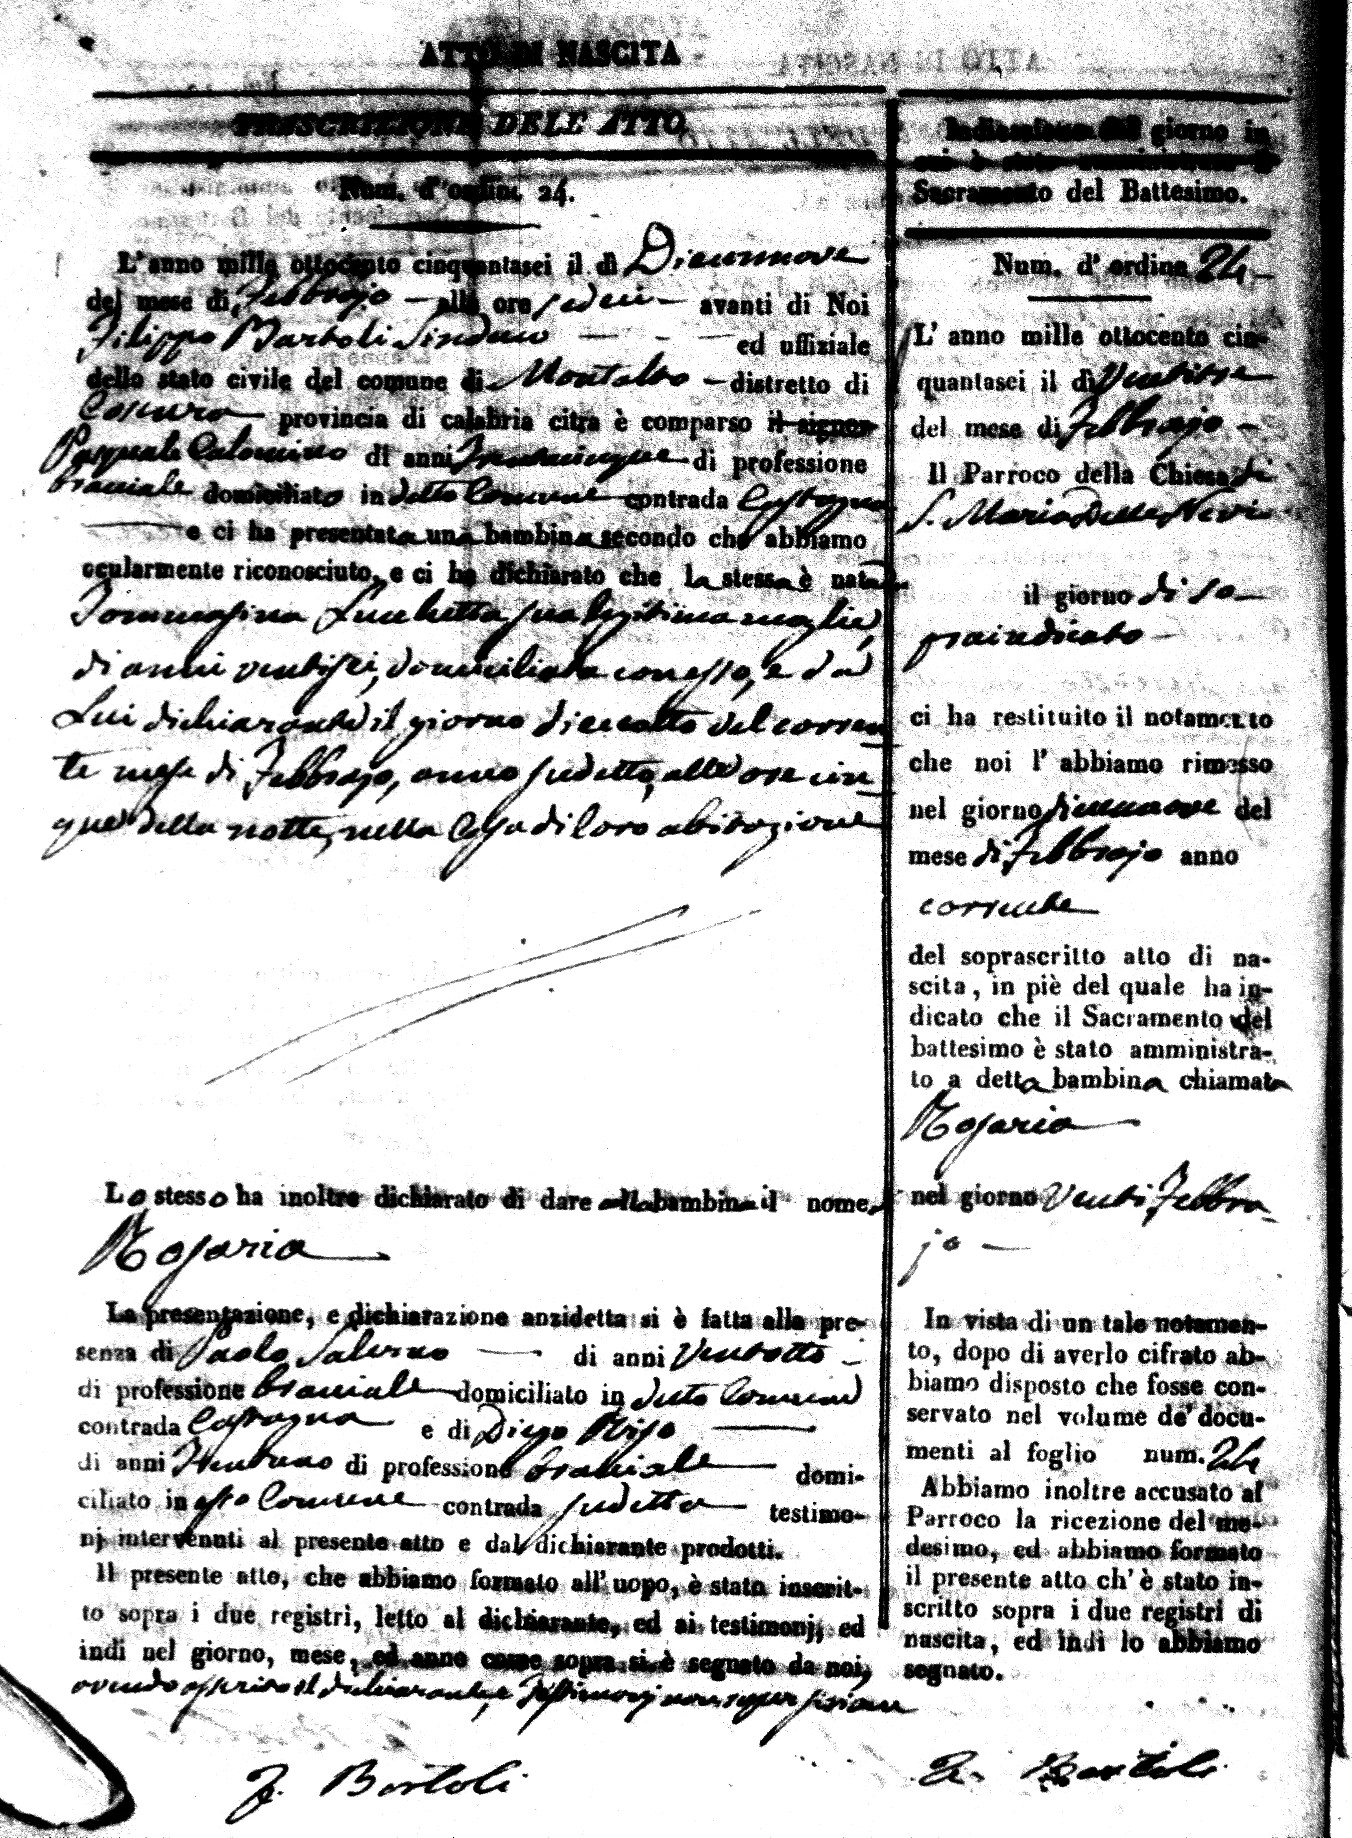 ATTO DI NASCITA
TRASCRIZIONE DELL' ATTO
Num. d'ordine 24.
L'anno mille ottocento cinquantasei il dì Diecinnove
del mese di Febbrajo alle ore sedeci avanti di Noi
Filippo Bartoli Sindaco ed uffiziale
dello stato civile del comune di Montalto distretto di
Cosenza provincia di calabria citra è comparso il signor
Pasquale Calomino di anni Trentacinque di professione
bracciale domiciliato in detto Comune contrada Castagna
e ci ha presentata una bambina secondo che abbiamo
ocularmente riconosciuto, e ci ha dichiarato che la stessa è nata da
Tommasina Lucchetta sua legittima moglie,
di anni ventisei, domiciliata con esso, e da
Lui dichiarante il giorno dieciotto del corren
te mese di Febbrajo, anno sudetto, alle ore cin
que della notte, nella Casa di loro abitazione
Lo stesso ha inoltre dichiarato di dare alla bambina il nome di
Rosaria
La presentazione, e dichiarazione anzidetta si è fatta alla pre-
senza di Paolo Salerno di anni Ventotto
di professione bracciale domiciliato in detto Comune
contrada Castagna e di Diego Riso
di anni Trentuno di professione bracciale domi-
ciliato in esso Comune contrada sudetta testimo-
nj intervenuti al presente atto e dal dichiarante prodotti.
Il presente atto, che abbiamo formato all' uopo, è stato inscrit-
to sopra i due registri, letto al dichiarante, ed ai testimonj, ed
indi nel giorno, mese, ed anno come sopra si è segnato da noi,
avendo asserito il dichiarante, e Testimonj non saper firmare
F. Bartoli
Indicazione del giorno in
cui è stato amministrato il
Sacramento del Battesimo.
Num. d' ordine 24
L' anno mille ottocento cin-
quantasei il dì Ventitre
del mese di Febbrajo
Il Parroco della Chiesa di
S. Maria della Neve
il giorno di so
praindicato
ci ha restituito il notamento
che noi l' abbiamo rimesso
nel giorno diecinnove del
mese di Febbrajo anno
corrente
del soprascritto atto di na-
scita, in piè del quale ha in-
dicato che il Sacramento del
battesimo è stato amministra-
to a detta bambina chiamata
Rosaria
nel giorno Venti Febbra
jo
In vista di un tale notamen-
to, dopo di averlo cifrato ab-
biamo disposto che fosse con-
servato nel volume de' docu-
menti al foglio num. 24
Abbiamo inoltre accusato al
Parroco la ricezione del me-
desimo, ed abbiamo formato
il presente atto ch' è stato in-
scritto sopra i due registri di
nascita, ed indi lo abbiamo
segnato.
F. Bartoli